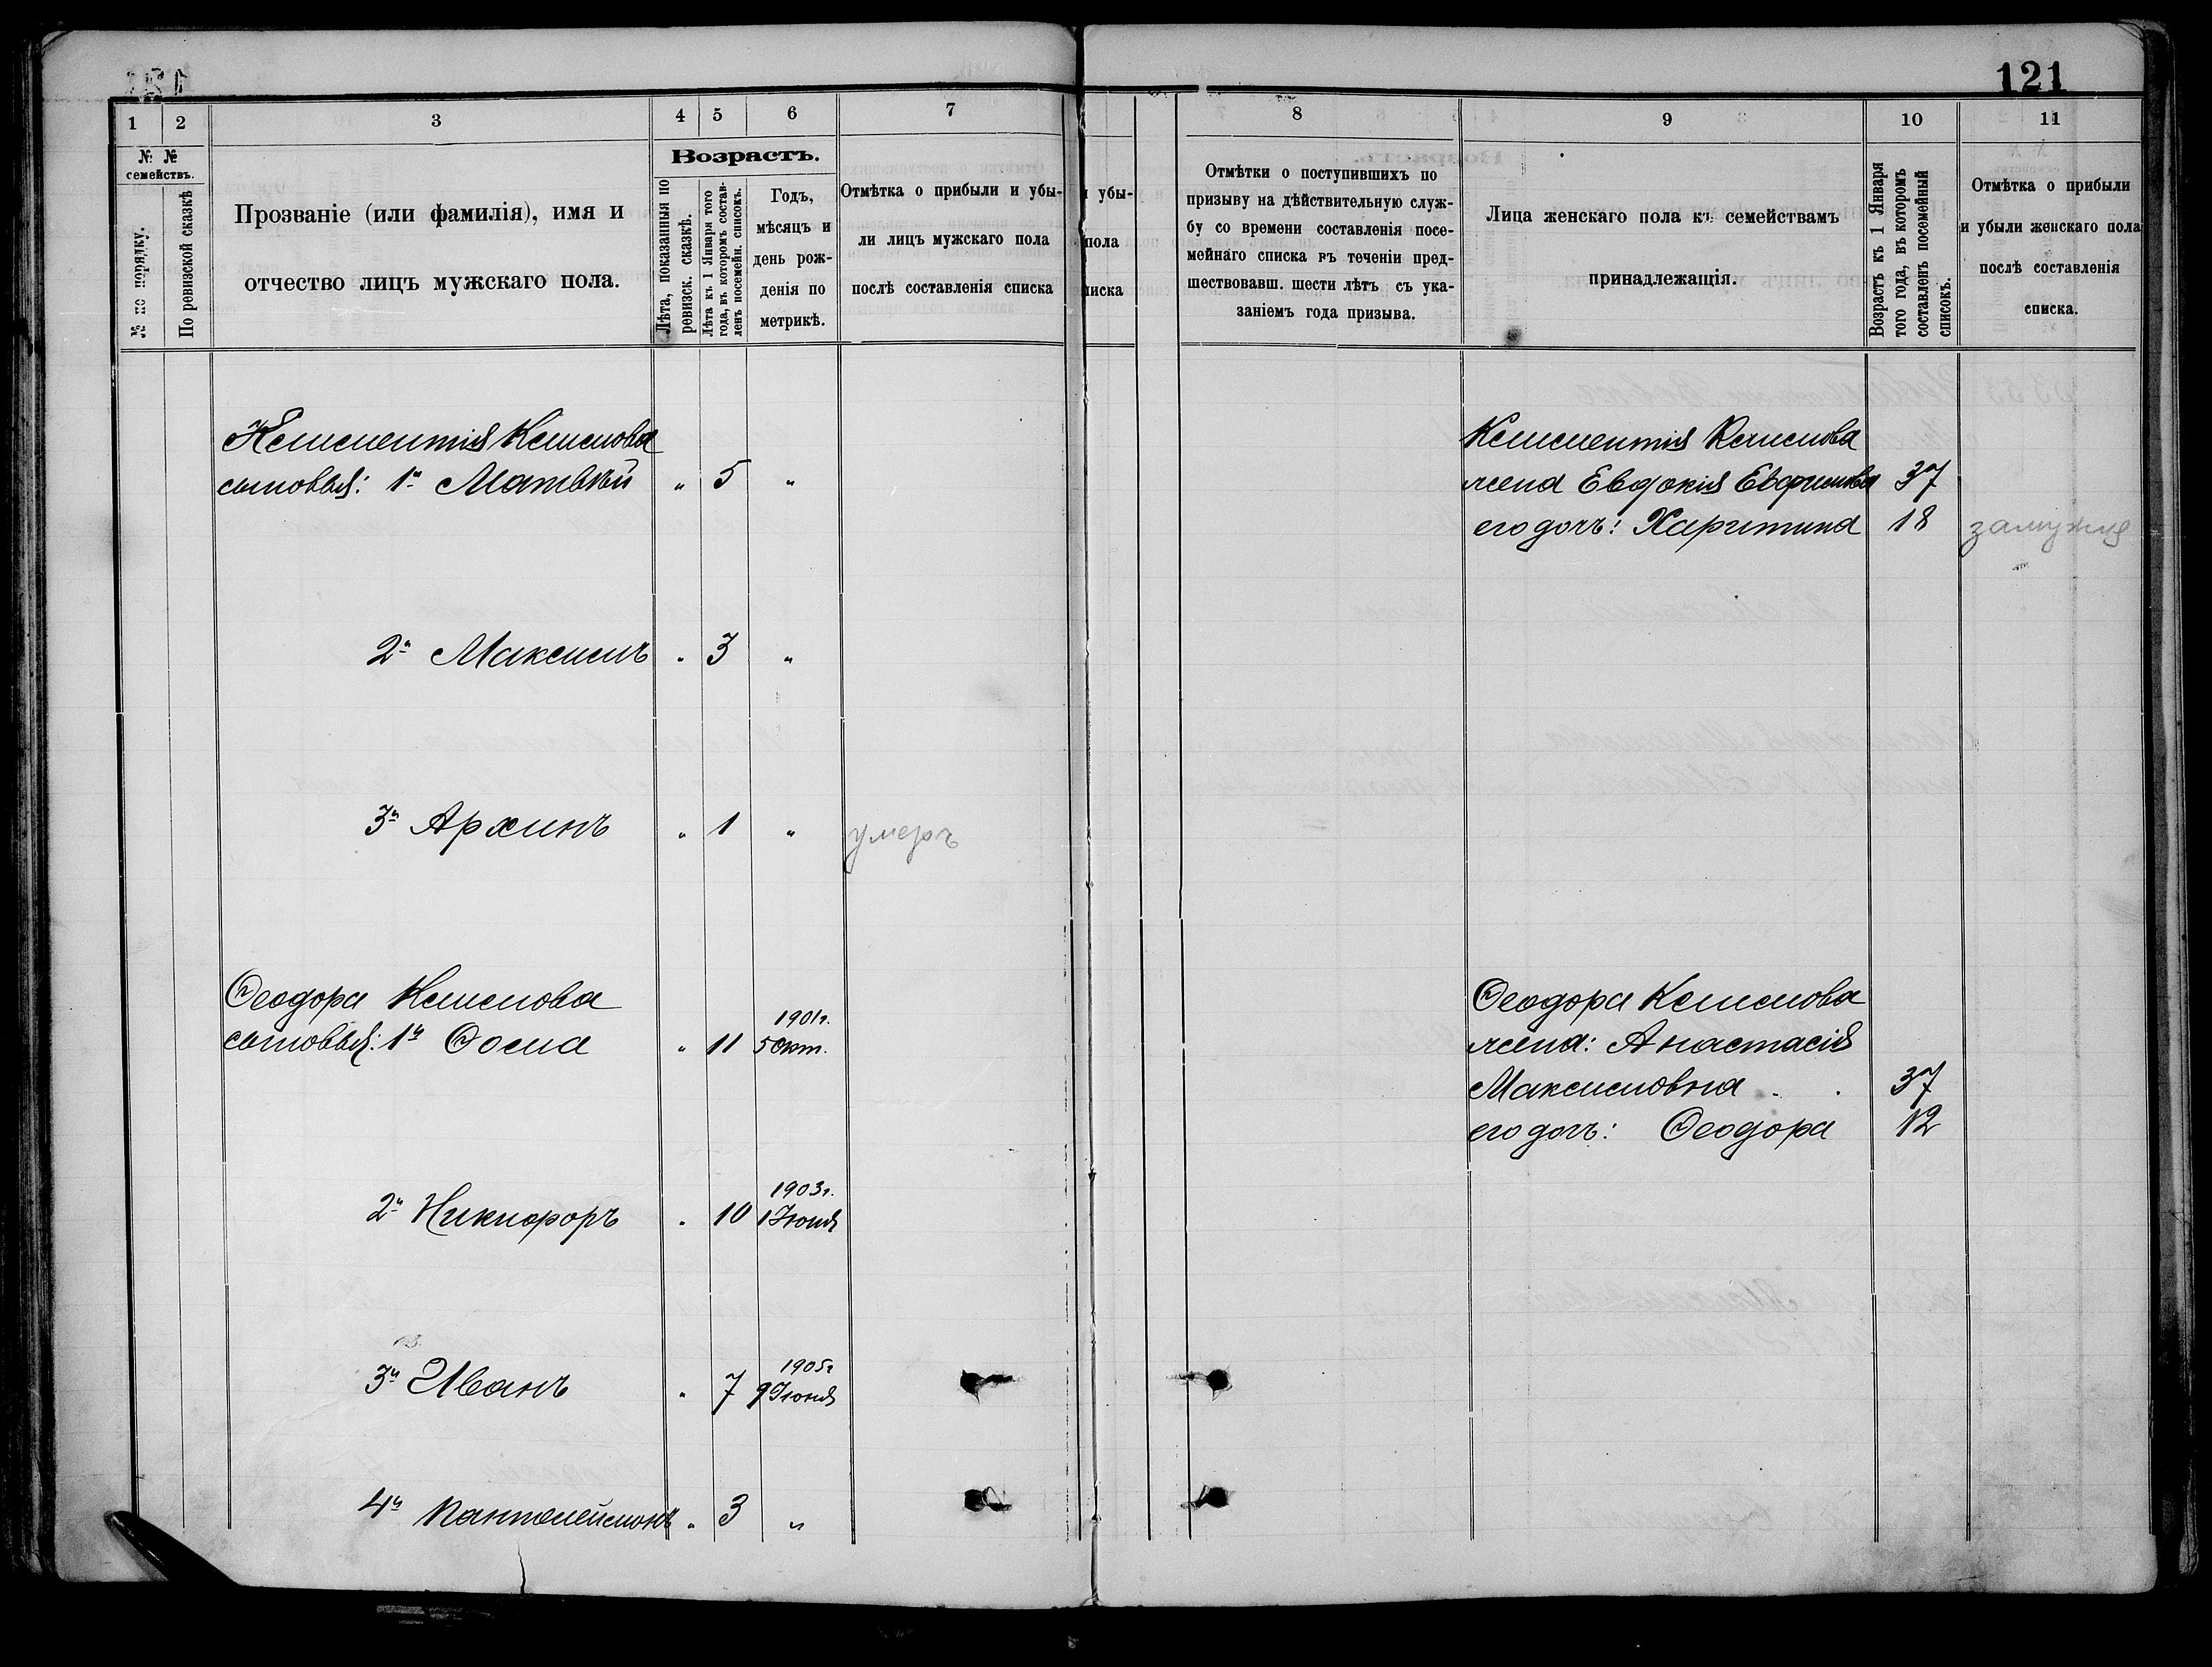 121
1 2 3 4 5 6 7
№ № семействъ.
№ по порядку.
По ревизской сказкѣ
Прозваніе (или фамилія), имя и
отчество лицъ мужскаго пола.
Возрастъ.
Лѣта, показанныя по
ревизск. сказкѣ.
Лѣта къ 1 Января того
года, въ которомъ состав-
ленъ посемейн. списокъ.
Годъ,
мѣсяцъ и
день рож-
денія по
метрикѣ.
Отмѣтка о прибыли и убы-
ли лицъ мужскаго пола
послѣ составленія списка
Климентія Климова
сыновья: 1й Матвѣй " 5 "
2й Максимъ " 3 "
3й Архипъ " 1 " умеръ
Ѳеодора Климова
1901г.
сыновья: 1й Ѳома " 11 5 Окт.
1903г.
2й Никифоръ " 10 1 Іюня
1905г
3й Иванъ " 7 9 Іюня
4й Пантелеймонъ " 3 "
и убы-
пола
писка
8 9 10 11
Отмѣтки о поступившихъ по
призыву на дѣйствительную служ-
бу со времени составленія посе-
мейнаго списка въ теченіи пред-
шествовавш. шести лѣтъ съ ука-
заніемъ года призыва.
Лица женскаго пола къ семействамъ
принадлежащія.
Возрастъ къ 1 Января
того года, въ которомъ
составленъ посемейный
списокъ.
Отмѣтка о прибыли
и убыли женскаго пола
послѣ составленія
списка.
Климентія Климова
жена Евдокія 37
его дочь: Харитина 18 замужня
Ѳеодора Климова
жена: Анастасія
Максимовна . . 37
его дочь: Ѳеодора 12